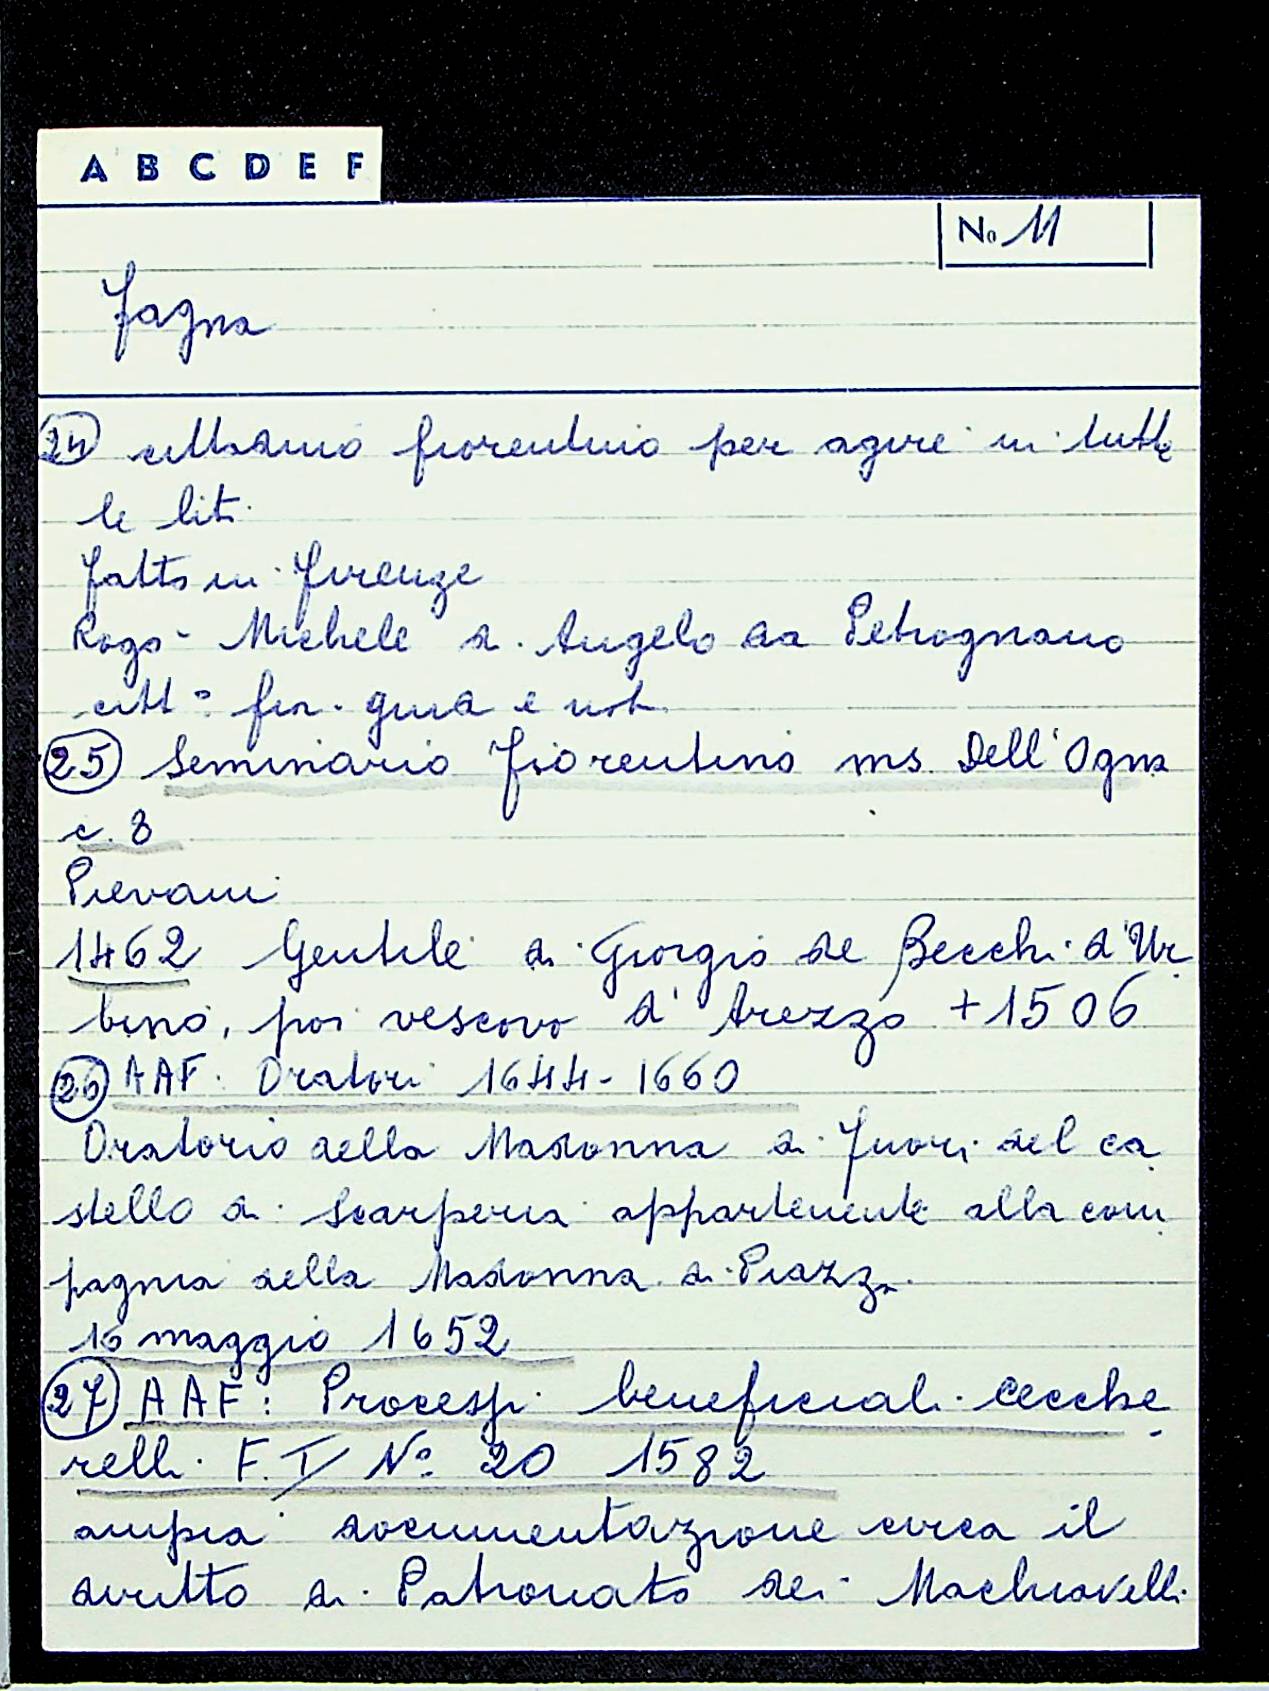 A B C D E F
No 11
Fagna
24 cittadino fiorentino per agire in tutte
le liti
fatto in Firenze
Rogò Michele di Angelo da Petrognano
citt.º fior. giud e not.
25 Seminario Fiorentino ms. Dell'Ogna
c. 8
Pievani
1462 Gentile di Giorgio de Becchi d'Ur
bino, poi vescovo d'Arezzo +1506
26 AAF: Oratori 1644-1660
Oratorio della Madonna di fuori del ca
stello di Scarperia appartenente alla com
pagnia della Madonna di Piazza
16 maggio 1652
27 AAF: Processi beneficiali Cecche
relli F. I Nº 20 1582
ampia documentazione circa il
diritto di Patronato dei Machiavelli